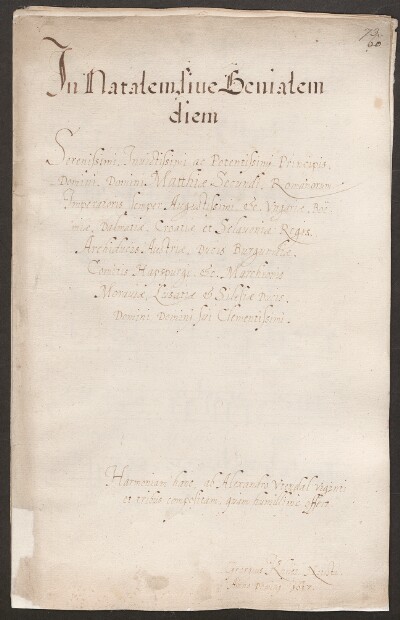 73.
90
In Natalem, siue Genialem
diem
Serenissimi, Inuictissimi ac Potentissimi Principis,
Domini, Domini, Matthiæ Secundi, Romanorum
Imperatoris semper Augustissimi etc. Vngariæ, Boë-
miæ, Dalmatiæ, Croatiæ et Sclauoniæ Regis,
Archiducis Austriæ, Ducis Burgundiæ,
Comitis Hapspurgi, etc. Marchionis
Morauiæ, Lusatiæ & Silesiæ Ducis.
Domini Domini sui Clementissimi.
Harmoniam hanc, ab Alexandro Vtendal viginti
et tribus compositam, quam humillime offert
Georgius
Anno